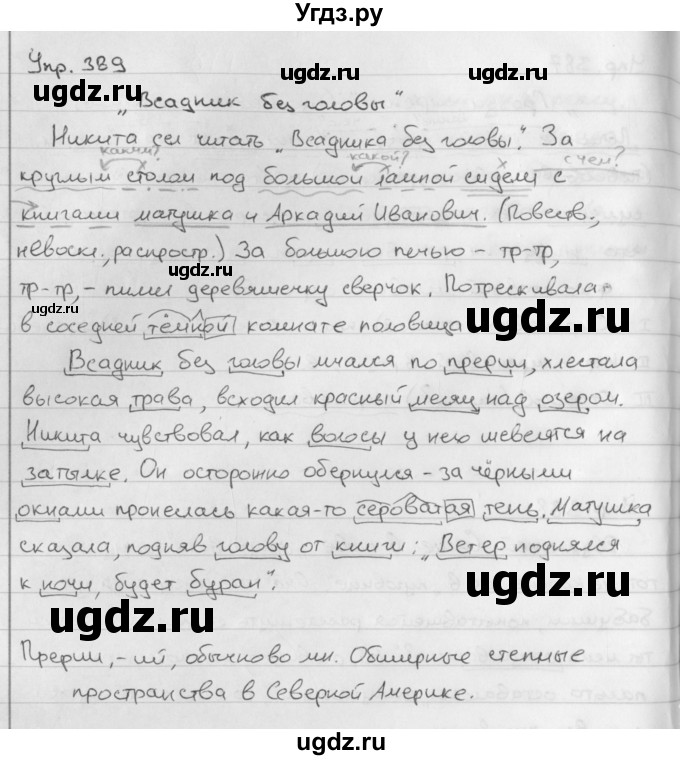 Угдз.ру
Упр. 389
„Всадник без головы“
Никита сел читать „Всадника без головы“. За
какими? какой? с чем?
круглым столом под большой лампой сидели с
книгами матушка и Аркадий Иванович. (Повеств.,
невоскл., распростр.) За большою печью – тр-тр,
тр-тр, – пилил деревяшечку сверчок. Потрескивала
в соседней тёмной комнате половица
Всадник без головы мчался по прерии, хлестала
высокая трава, всходил красный месяц над озером.
Никита чувствовал, как волосы у него шевелятся на
затылке. Он осторожно обернулся – за чёрными
окнами пронеслась какая-то сероватая тень. Матушка
сказала, подняв голову от книги: „Ветер поднялся
к ночи, будет буран“.
Прерии, -ий, обычково мн. Обширные степные
пространства в Северной Америке.
ugdz.ru
ugdz.ru
ugdz.ru
ugdz.ru
ugdz.ru
ugdz.ru
ugdz.ru
ugdz.ru
ugdz.ru
ugdz.ru
ugdz.ru